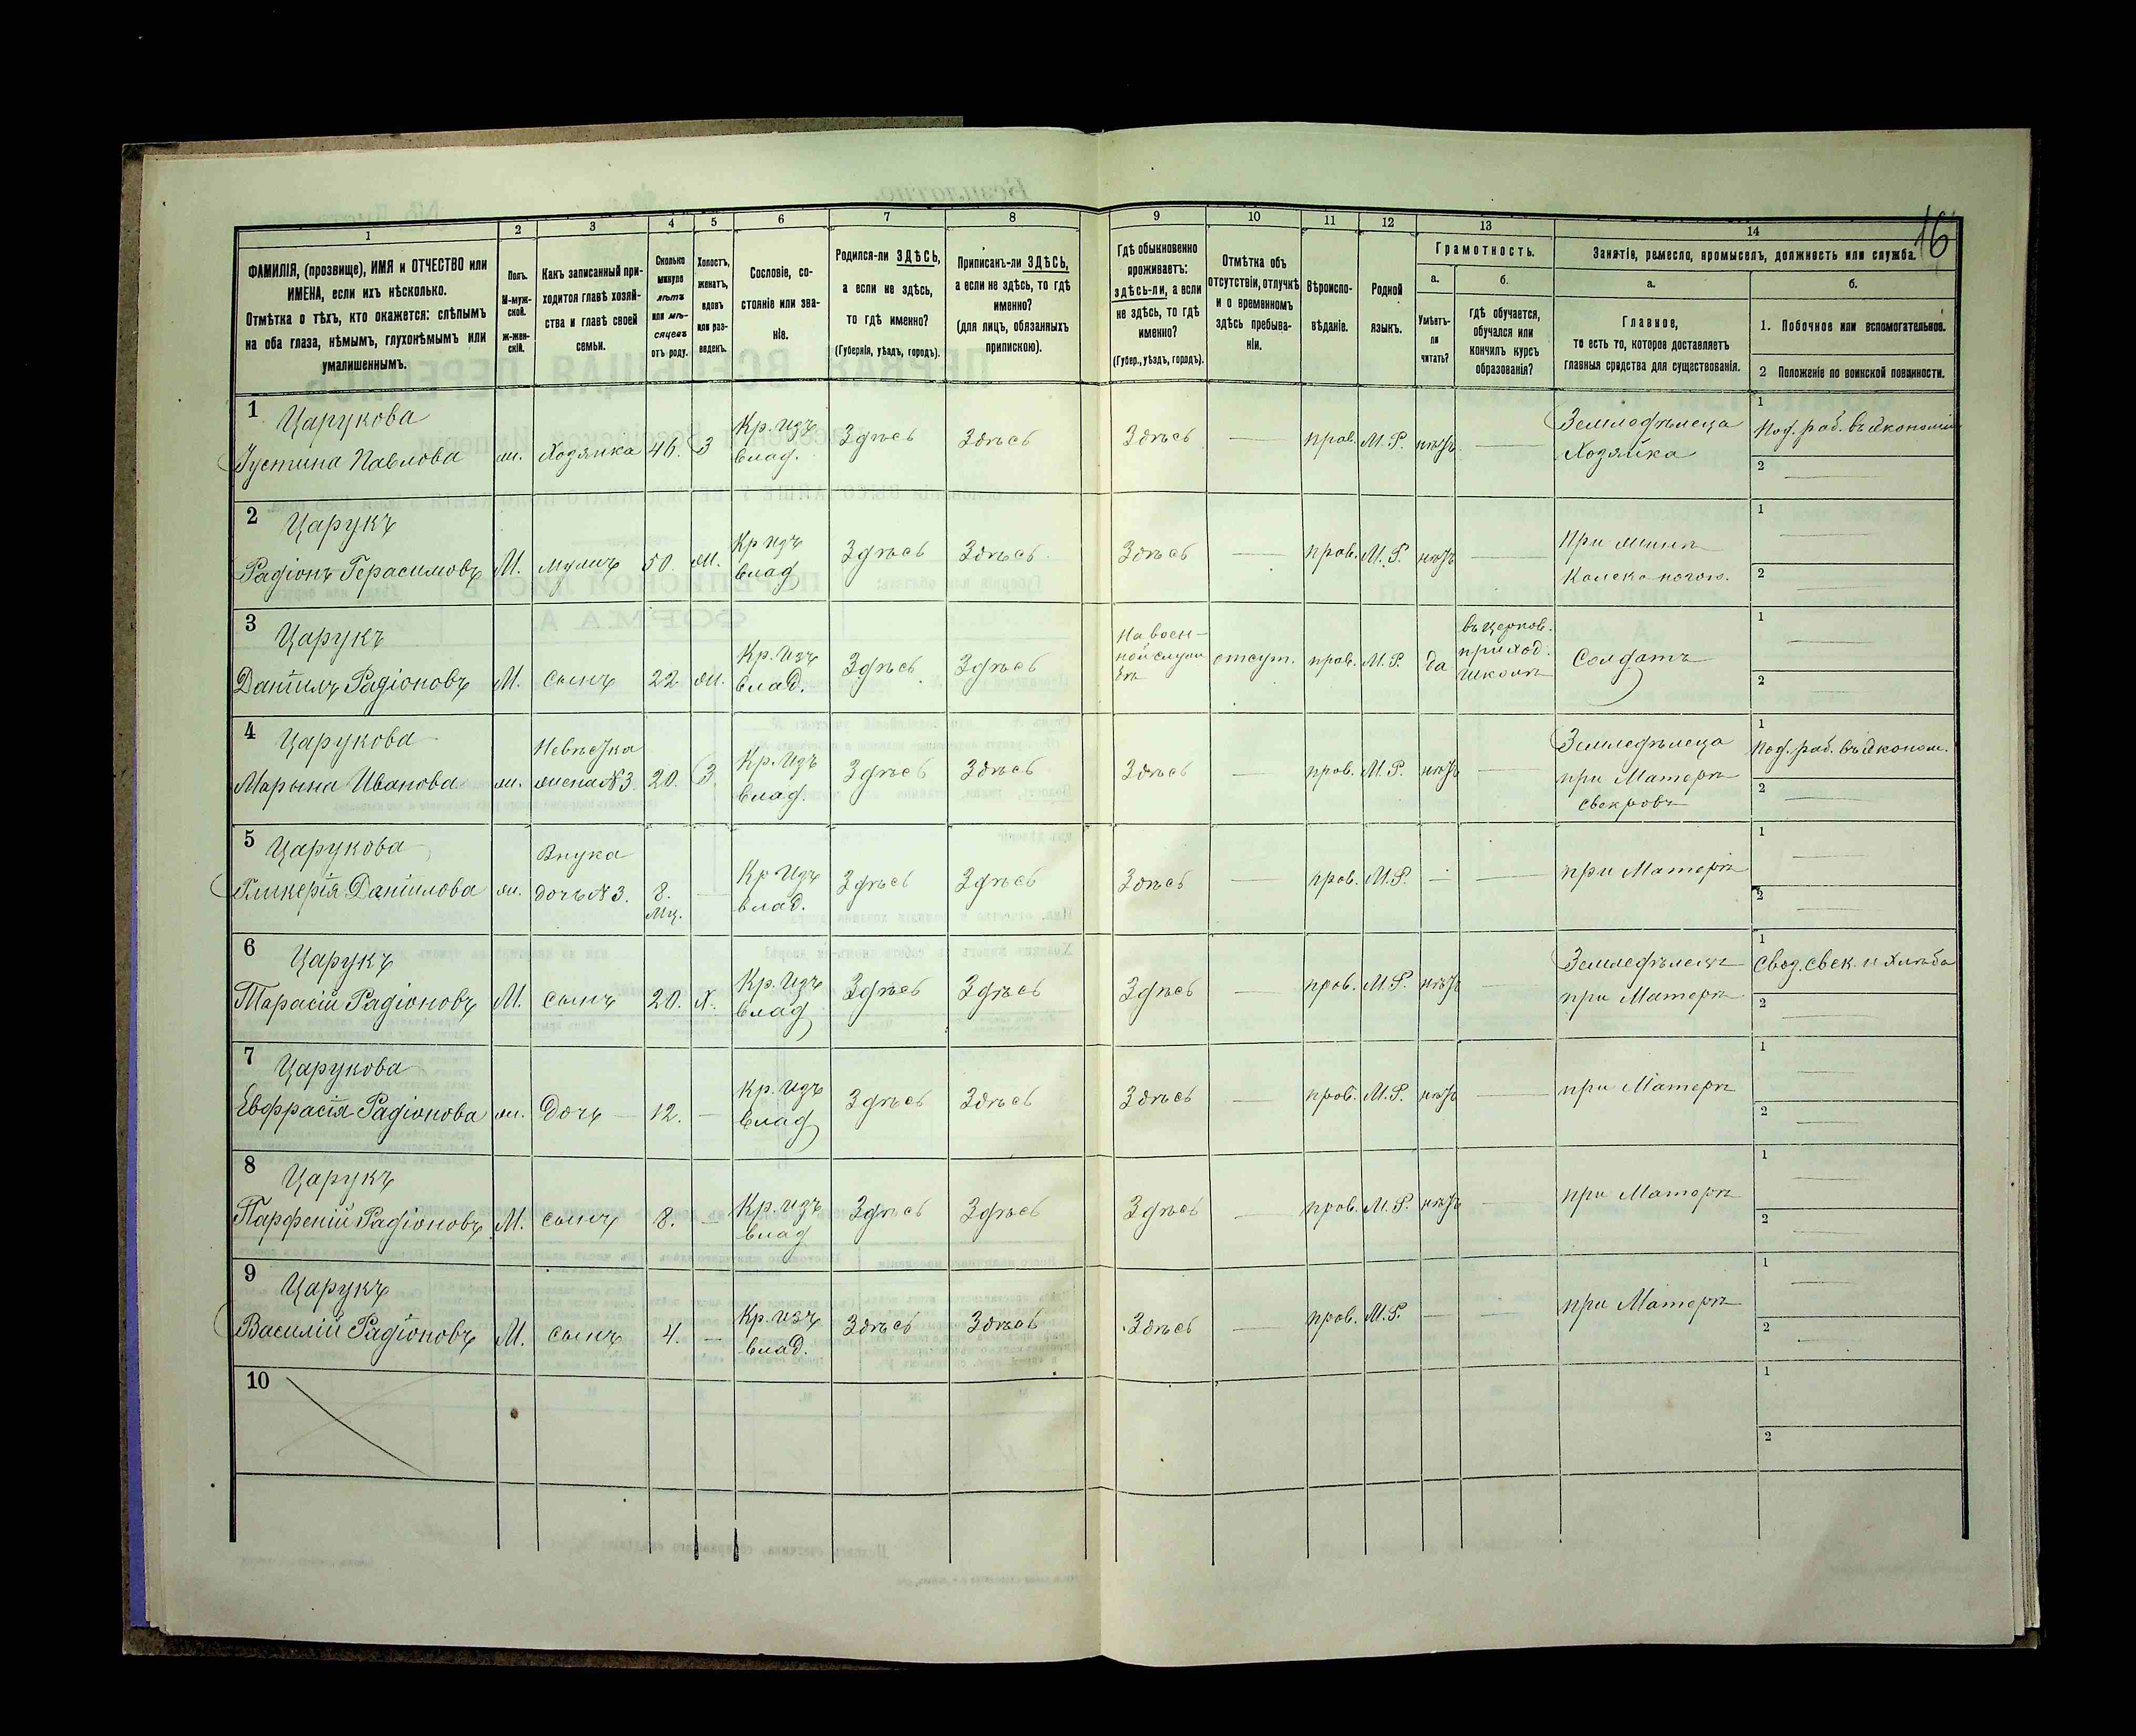 16
1
2
3
4
5
6
7
8
9
10
11
12
13
14
ФАМИЛІЯ, (прозвище), ИМЯ и ОТЧЕСТВО или
ИМЕНА, если ихъ нѣсколько.
Отмѣтка о тѣхъ, кто окажется: слѣпымъ
на оба глаза, нѣмымъ, глухонѣмымъ или
умалишеннымъ.
Полъ.
М-муж-
ской.
Ж-жен-
скій.
Какъ записанный при-
ходится главѣ хозяй-
ства и главѣ своей
семьи.
Сколько
минуло
лѣтъ
или мѣ-
сяцевъ
отъ роду.
Холостъ,
женатъ,
вдовъ
или раз-
веденъ.
Сословіе, со-
стояніе или зва-
ніе.
Родился-ли ЗДѢСЬ,
а если не здѣсь,
то гдѣ именно?
(Губернія, уѣздъ, городъ).
Приписанъ-ли ЗДѢСЬ,
а если не здѣсь, то гдѣ
именно?
(для лицъ, обязанныхъ
припискою).
Гдѣ обыкновенно
проживаетъ:
здѣсь-ли, а если
не здѣсь, то гдѣ
именно?
(Губер., уѣздъ, городъ).
Отмѣтка объ
отсутствіи, отлучкѣ
и о временномъ
здѣсь пребыва-
ніи.
Вѣроиспо-
вѣданіе.
Родной
языкъ.
Грамотность.
а.
Умѣетъ-
ли
читать?
б.
гдѣ обучается,
обучался или
кончилъ курсъ
образованія?
Занятіе, ремесло, промыселъ, должность или служба.
а.
Главное,
то есть то, которое доставляетъ
главныя средства для существованія.
б.
1. Побочное или вспомогательное.
2 Положеніе по воинской повинности.
1 Царукова
Іустина Павлова ж. Хозяйка 46. З Кр. изъ влад. Здѣсь Здѣсь Здѣсь — прав. М.Р. нѣтъ — Земледѣлеца Хозяйка
1 Под. раб. въ экономіи
2 —
2 Царукъ
Радіонъ Герасимовъ М. мужъ 50. ж. Кр изъ влад Здѣсь Здѣсь. Здѣсь — прав. М.Р. нѣтъ — При женѣ Калека ногою.
1 —
2 —
3 Царукъ
Даніилъ Радіоновъ М. сынъ 22 ж. Кр. изъ влад. Здѣсь Здѣсь На воен- ной служ бѣ отсут. прав. М.Р. да въ церков. приход. школѣ Солдатъ
1 —
2 —
4 Царукова
Марына Иванова ж. Невѣстка жена №3. 20. З. Кр. изъ влад. Здѣсь Здѣсь Здѣсь — прав. М.Р. нѣтъ — Земледѣлеца при Матери свекровѣ
1 Под. раб. въ эконом.
2 —
5 Царукова
Гликерія Даніилова ж. Внука дочь №3. 8. Мц. — Кр изъ влад. Здѣсь Здѣсь Здѣсь — прав. М.Р. — — при Матерѣ
1 —
2 —
6 Царукъ
Тарасій Радіоновъ М. сынъ 20. Х. Кр. изъ влад Здѣсь Здѣсь Здѣсь — прав. М.Р. нѣтъ — Земледѣлецъ при Матерѣ
1 Свод. свек. и хлѣба
2 —
7 Царукова
Евфрасія Радіонова ж. Дочь 12. — Кр. изъ влад Здѣсь Здѣсь Здѣсь — прав. М.Р. нѣтъ — при Матерѣ
1 —
2 —
8 Царукъ
Парфеній Радіоновъ М. сынъ 8. — Кр. изъ влад Здѣсь Здѣсь Здѣсь — прав. М.Р. нѣтъ — при Матерѣ
1 —
2 —
9 Царукъ
Василій Радіоновъ М. сынъ 4. — Кр. изъ влад. Здѣсь Здѣсь Здѣсь — прав. М.Р. — — при Матерѣ
1 —
2 —
10
1
2